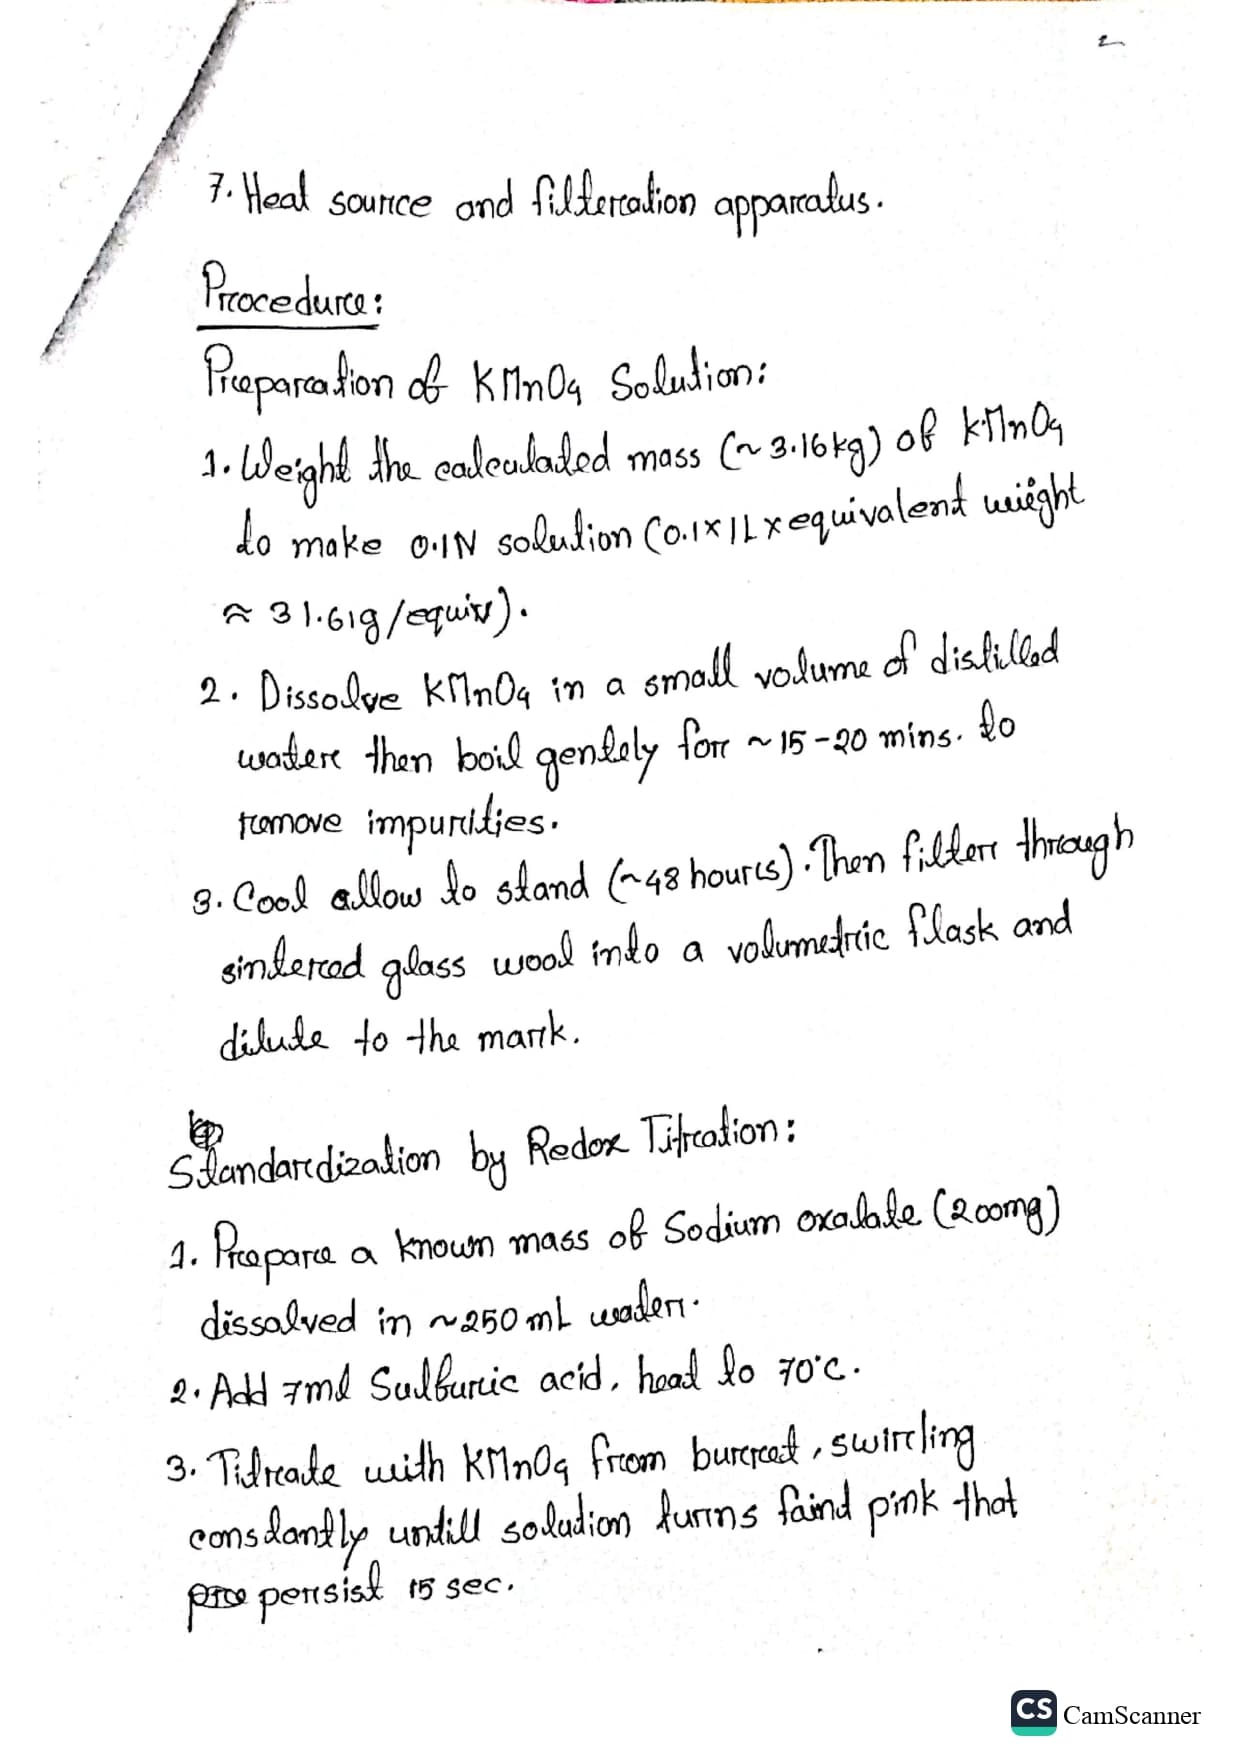 2
7. Heat source and filteration apparatus.
Procedure:
Preparation of KMnO4 Solution:
1. Weight the calculated mass (~ 3.16kg) of KMnO4
to make 0.1N solution (0.1×1L×equivalent weight
≈ 31.61g/equiv).
2. Dissolve KMnO4 in a small volume of distilled
water then boil gently for ~15-20 mins. to
remove impurities.
3. Cool allow to stand (~48 hours). Then filter through
sintered glass wool into a volumetric flask and
dilute to the mark.
Standardization by Redox Titration:
1. Prepare a known mass of Sodium oxalate (200mg)
dissolved in ~250 mL water.
2. Add 7ml Sulfuric acid, heat to 70°C.
3. Titrate with KMnO4 from burret, swirling
constantly untill solution turns faint pink that
persist 15 sec.
CS CamScanner